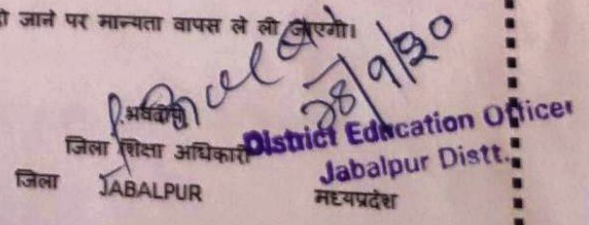 जाने पर मान्यता वापस ले ली जाएगी।
28/9/20
भवदीय
जिला शिक्षा अधिकारी District Education Officer
Jabalpur Distt.
जिला JABALPUR मध्यप्रदेश